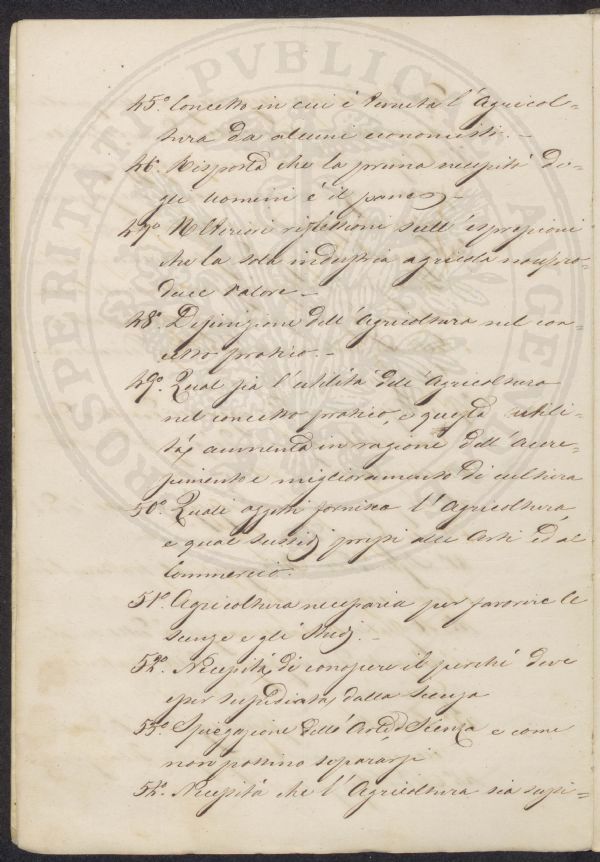 45.° Concetto in cui è tenuta l'Agricol=
tura da alcuni economisti. –
46. Risposta che la prima necessità de=
gli uomini è il pane –
47.° Ulteriori riflessioni sull'espressioni
che la sola industria agricola non pro=
duce valore –
48.° Definizione dell'Agricoltura nel con=
cetto pratico. –
49.° Qual sia l'utilità dell'Agricoltura
nel concetto pratico, e questa utili=
tà aumenta in ragione dell'Accre=
scimento e miglioramento di cultura
50.° Quali oggetti fornisca l'Agricoltura
e quai sussidj presti alle Arti ed al
Commercio.
51.° Agricoltura necessaria per favorire le
scienze e gli Studj. –
52.° Necessità di conoscere il perchè deve
esser sussidiata dalla Scienza
53.° Spiegazione dell'Arte e Scienza e come
non possino separarsi
54.° Necessità che l'Agricoltura sia sussi=
PROSPERITATI PVBLICAE AVGEND